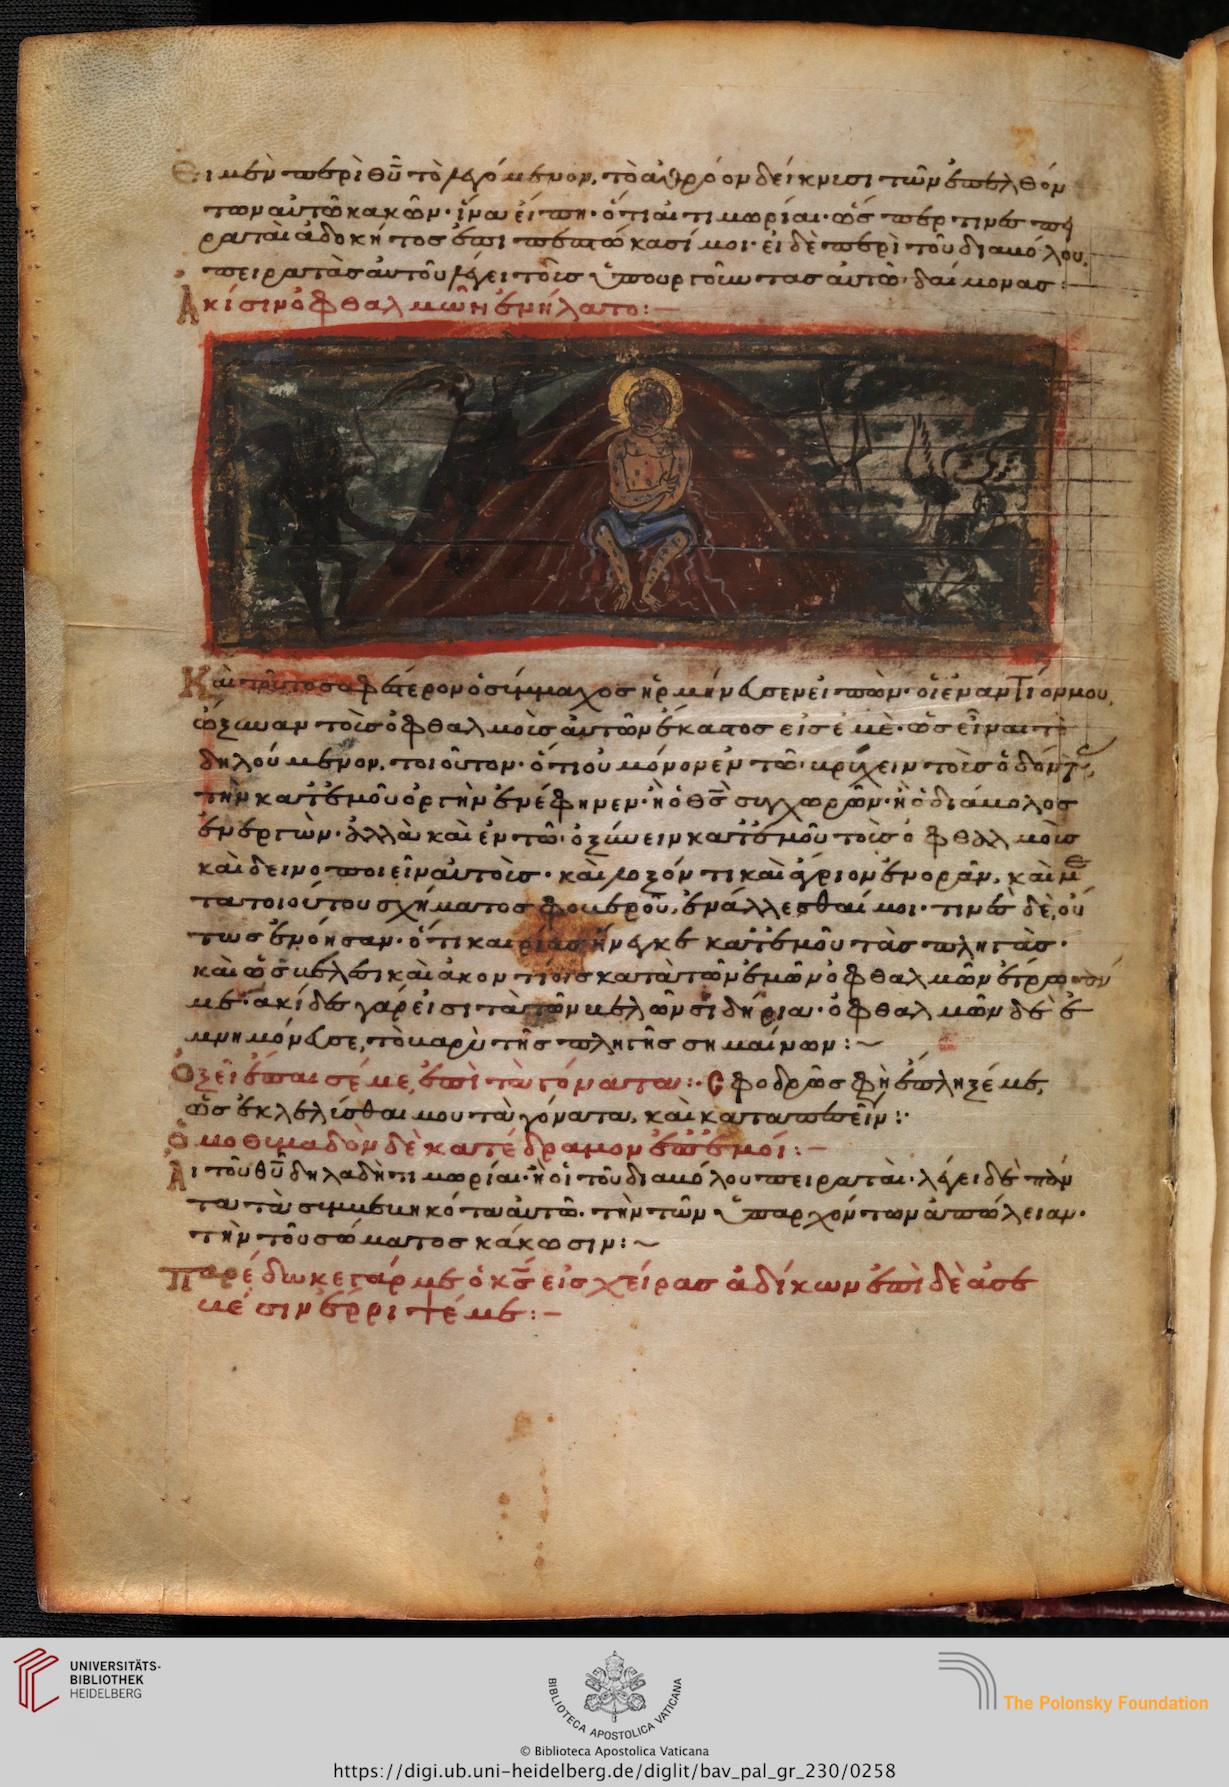 Εἰ μὲν περὶ θῦ τὸ λεγόμενον, τὸ ἀθρόον δείκνυσι τῶν ἐπελθόν
των αὐτῶ κακῶν· ἵνα εἴπη· ὅτι αἱ τιμωρίαι· ὥσπερ τινὲς πει
ραταὶ ἀδοκήτος ἐπιπεπτώκασί μοι· εἰ δὲ περὶ τοῦ διαβόλου,
πειρατὰς αὐτοῦ λέγει τοῖς ὑπουργοῦντας αὐτῶ δαίμονας:
Ἀκίσιν ὀφθαλμῶν ἐνήλατο:
Καὶ τοῦτο σαφέστερον ὁ σύμμαχος ἡρμήνευσεν εἰπὼν· οἱ ἐναντίον μου,
ὤξυναν τοῖς ὀφθαλμοῖς αὐτῶν ἕκαστος εἰς ἐμὲ· ὡς εἶναι τὸ
δηλούμενον, τοιοῦτον· ὅτι οὐ μόνον ἐν τῶ βρύχειν τοῖς ὀδόντας,
τὴν κατ' ἐμοῦ ὀργὴν ἐνέφηνεν· ἢ ὁ θς συγχωρῶν· ἢ ὁ διάβολος
ἐνεργῶν· ἀλλὰ καὶ ἐν τῶ ὀξύνειν κατ' ἐμοῦ τοῖς ὀφθαλμοῖς
καὶ δεινοποιεῖν αὐτοῖς· καὶ λοξόν τι καὶ ἄγριον ἐνορᾶν, καὶ μετ
τα τοιούτου σχήματος φοβεροῦ, ἐνάλλεσθαί μοι· τινὲς δὲ, οὕ
τως ἐνόησαν· ὅτι καιρίας ἤνεγκε κατ' ἐμοῦ τὰς πληγὰς·
καὶ ὡς βέλει καὶ ἀκοντίοις κατὰ τῶν ἐμῶν ὀφθαλμῶν
με· ἀκίδες γάρ εἰσι τὰ τῶν βελῶν σιδήρια· ὀφθαλμῶν δὲ ἐ
μνημόνευσε, τὸ βαρὺ τῆς πληγῆς σημαίνων:
Ὀξεῖ ἔπαισέ με, ἐπὶ τὰ γόνατα: Σφοδρῶς φὴ ἔπληξέ με,
ὡς ἐκλελύσθαι μου τὰ γόνατα, καὶ καταπεσεῖν:
Ὁμοθυμαδὸν δὲ κατέδραμον ἐπ' ἐμοί:
Αἱ τοῦ θῦ δηλαδὴ τιμωρίαι· ἢ οἱ τοῦ διαβόλου πειραταὶ· λέγει δὲ πάν
τα τὰ συμβεβηκότα αὐτῶ· τὴν τῶν ὑπαρχόντων ἀπώλειαν·
τὴν τοῦ σώματος κάκωσιν:
Παρέδωκε γάρ με ὁ κς εἰς χείρας ἀδίκων ἐπὶ δὲ ἀσε
βέσιν ἔρριψέ με:
UNIVERSITÄTS-
BIBLIOTHEK
HEIDELBERG
BIBLIOTECA APOSTOLICA VATICANA
The Polonsky Foundation
© Biblioteca Apostolica Vaticana
https://digi.ub.uni-heidelberg.de/diglit/bav_pal_gr_230/0258